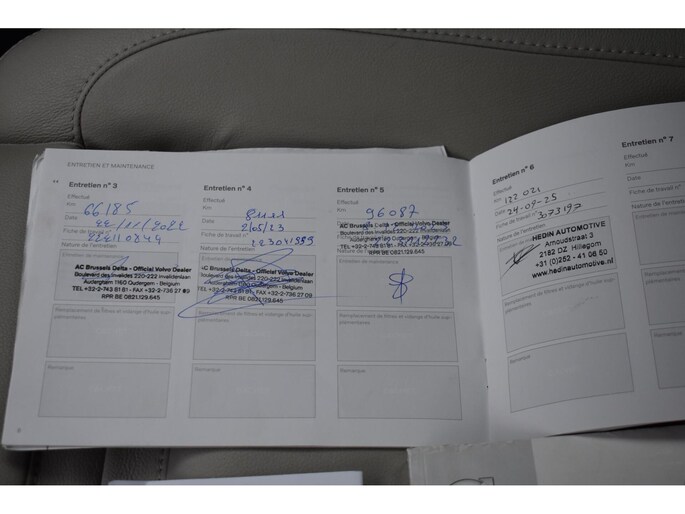 ENTRETIEN ET MAINTENANCE
Entretien n° 3
Effectué
Km 66185
Date 22/11/2022
Fiche de travail n°
Nature de l'entretien
Entretien de
AC Brussels Delta - Official Volvo Dealer
Boulevard des Invalides 220-222 Invalidenlaan
Auderghem 1160 Oudergem - Belgium
TEL +32-2-743 81 81 - FAX +32-2-736 27 09
RPR BE 0821.129.645
Remplacement de filtres et vidange d'huile sup-
plémentaires
Remarque
Entretien n° 4
Effectué
Km
Date 2/05/23
Fiche de travail n°
Nature de l'entretien
AC Brussels Delta - Official Volvo Dealer
Boulevard des Invalides 220-222 Invalidenlaan
Auderghem 1160 Oudergem - Belgium
TEL +32-2-743 81 81 - FAX +32-2-736 27 09
RPR BE 0821.129.645
Remplacement de filtres et vidange d'huile sup-
plémentaires
Remarque
Entretien n° 5
Effectué
Km 96087
AC Brussels Delta - Official Volvo Dealer
Boulevard des Invalides 220-222 Invalidenlaan
Auderghem 1160 Oudergem - Belgium
RPR BE 0821.129.645
Entretien de maintenance
Remplacement de filtres et vidange d'huile sup-
plémentaires
Remarque
Entretien n° 6
Effectué
Km 122 021
Date 24-09-25
Fiche de travail n° 3073197
Nature de l'entretien
HEDIN AUTOMOTIVE
Arnoudstraat 3
2182 DZ Hillegom
+31 (0)252 - 41 08 50
www.hedinautomotive.nl
Remplacement de filtres et vidange d'huile sup-
plémentaires
Remarque
Entretien n° 7
Effectué
Km
Date
Fiche de travail n°
Nature de
Entretien
Remplacement
plémentaires
Remarque